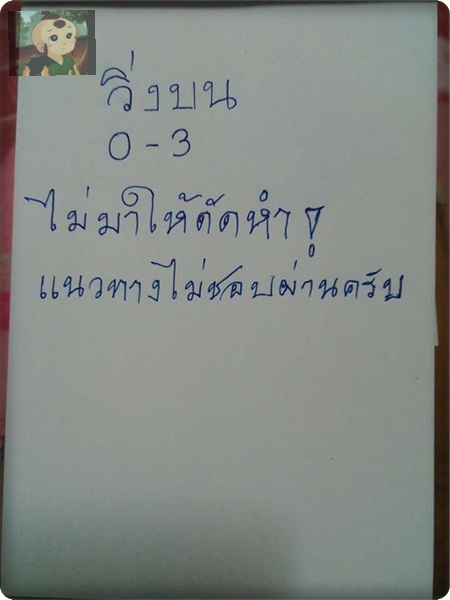 วิ่งบน
0-3
ไม่มาให้ตัดหำ
แนวทางไม่ชอบผ่านครับ